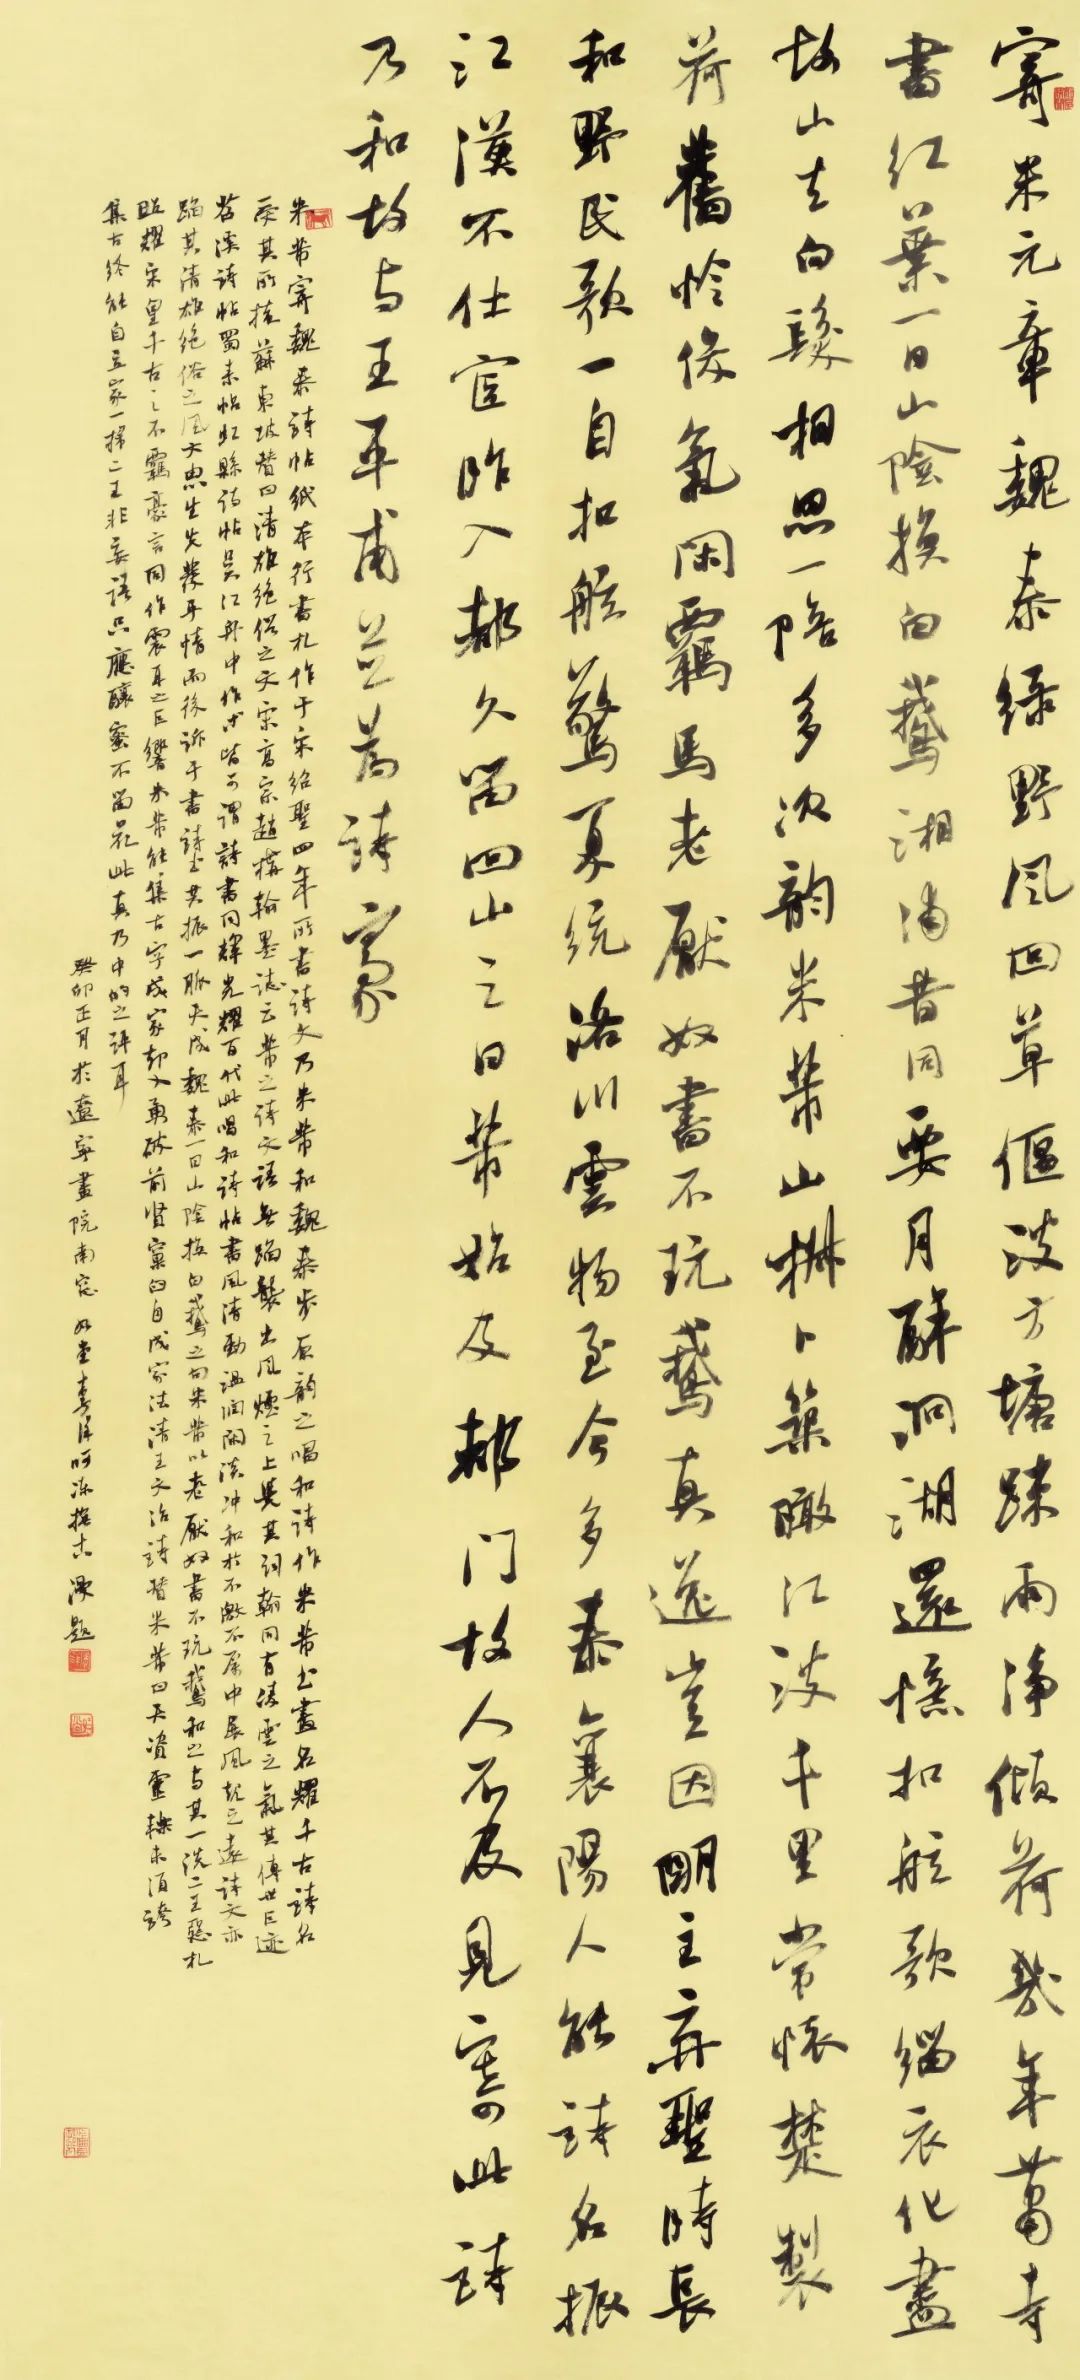 寄米元章魏泰绿野风回草偃波方塘疎雨净倾荷几年萧寺
書红葉一日山陰换白鹅湘浦昔同要月醉洞湖還憶扣舷歌缁衣化盡
故山去白髮相思一陪多次韵米芾山椒卜築瞰江波千里常懐楚製
荷舊怜俊氣闲羁馬老厭奴書不玩鹅真逸豈因明主弃聖時長
和野民歌一自扣舷驚夏统洛川雲物至今多泰襄陽人能詩名振
江漢不仕宦昨入都久留回山之日芾始及都门故人不及見寄此詩
乃和故与王平甫並為詩豪
米芾寄魏泰詩帖紙本行書札作于宋绍聖四年所書詩文乃米芾和魏泰步原韵之唱和詩作米芾书畫名耀千古詩名
其所掩蘇東坡赞曰清雄绝俗之文宋高宗趙構翰墨誌云芾之詩文語無蹈襲出風煙之上覺其词翰同有凌雲之氣其傳世巨迹
苕溪詩帖蜀素帖虹縣詩帖吴江舟中作等皆可謂詩書同輝光耀百代此唱和詩帖書風清勁温润闲淡冲和於不激不厲中展風規之遠詩文亦
蹈其清雄绝俗之风文思生先發乎情而後訴于書詩书共振一脈天成魏泰一日山陰换白鹅之句米芾以老厭奴書不玩鹅和之与其一洗二王惡札
照耀宋皇千古之不羁豪言同作震耳之巨響米芾能集古字成家却入勇破前贤窠臼自成家法清王文治詩赞米芾曰天资轢未须誇
集古终能自立家一掃二王非妄語只應釀蜜不留花此真乃中的之評耳
癸卯正月於遼寧畫院南窓春洋呵凍撫古漫题